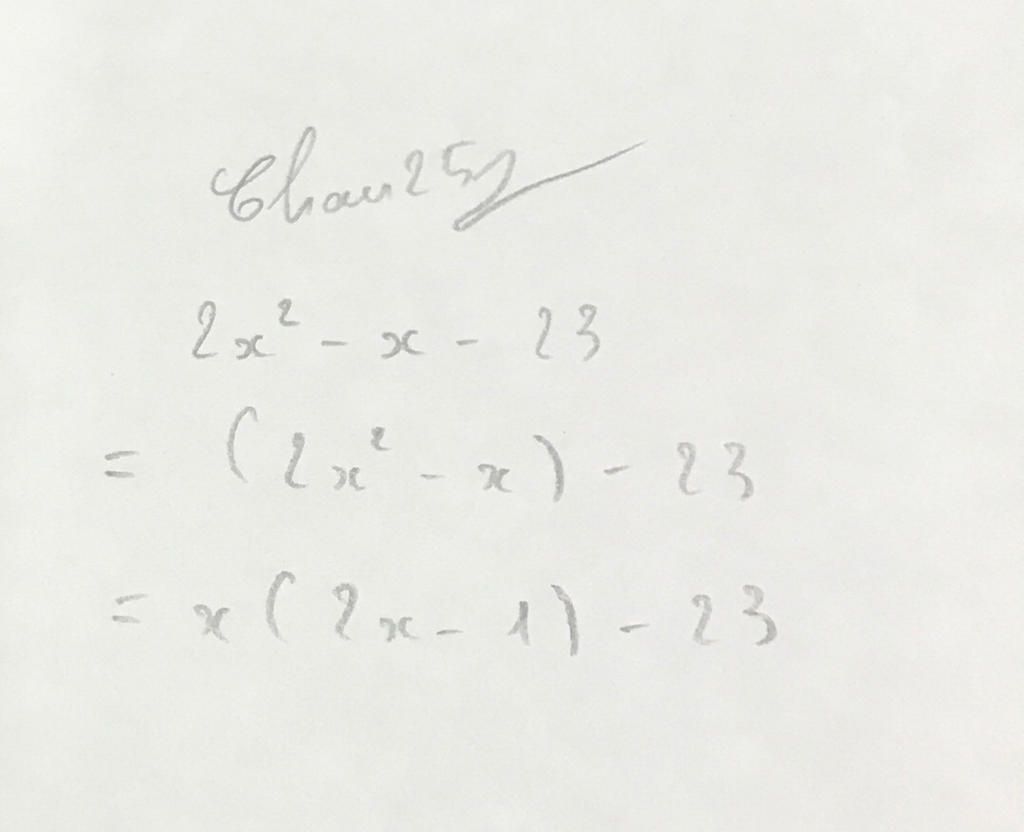 Chau25g
2x² - x - 23
= (2x² - x) - 23
= x(2x - 1) - 23